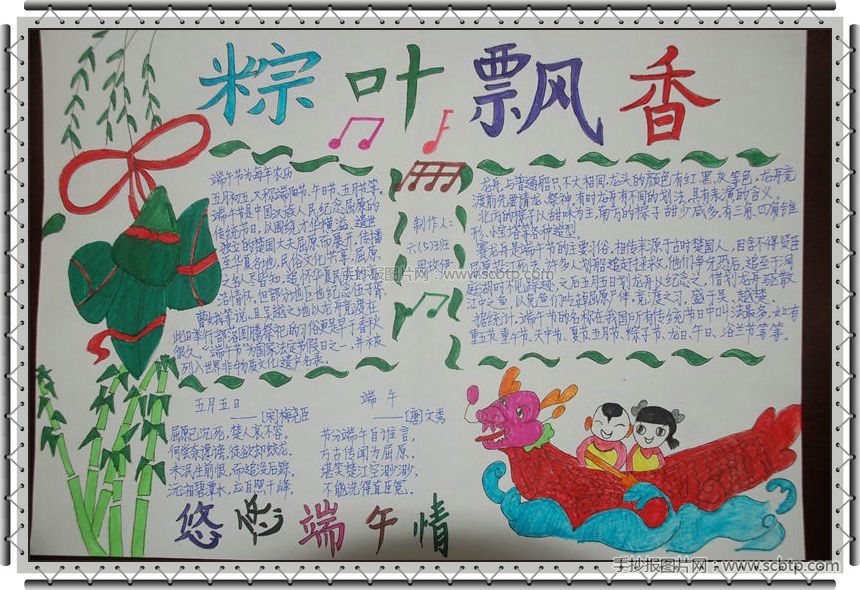 粽叶飘香
端午节为每年农历
五月初五,又称端阳节、午日节、五月节等。
端午节是中国汉族人民纪念屈原的
传统节日,以围绕才华横溢、遗世
独立的楚国大夫屈原而展开,传播
至华夏各地,民俗文化共享,屈原
之名人尽皆知,追怀华夏民族的高
洁情怀。但部分地区也纪念伍子胥、
曹娥等说,且吴越之地以龙舟竞渡在
此日举行部落图腾祭祀的习俗更是早于春秋
很久。“端午节”为国家法定节假日之一,并被
列入世界非物质文化遗产名录。
制作人:
六(5)班
龙舟,与普通船只不大相同,龙头的颜色有红、黑、灰等色,龙舟竞
渡前先要请龙、祭神,有时龙舟有不同的划法,具有表演的含义。
北方的粽子以甜味为主,南方的粽子甜少咸多,有三角、四角锥
形、小宝塔等各种造型。
赛龙舟是端午节的主要习俗。相传来源于古时楚国人,因舍不得贤臣
屈原投江死去,许多人划船追赶拯救。他们争先恐后,追至洞
庭湖时不见踪迹,之后五月五日划龙舟以纪念之。借划龙舟驱散
江中之鱼,以免鱼们吃掉屈原尸体。竞渡之习,盛于吴、越、楚。
据统计,端午节的名称在我国所有传统节日中叫法最多,如:有
重五节、重午节、天中节、夏节、五月节、粽子节、龙日、午日、浴兰节等等。
五月五日
——[宋]梅尧臣
屈原已沉死,楚人哀不容。
何尝奈谗谤,徒欲却蛟龙。
未泯生前恨,而追没后踪。
沅湘碧潭水,应自照千峰。
端午
——[唐]文秀
节分端午自谁言,
万古传闻为屈原。
堪笑楚江空渺渺,
不能洗得直臣冤。
悠悠端午情
手抄报图片网:www.scbtp.com
手抄报图片网:www.scbtp.com